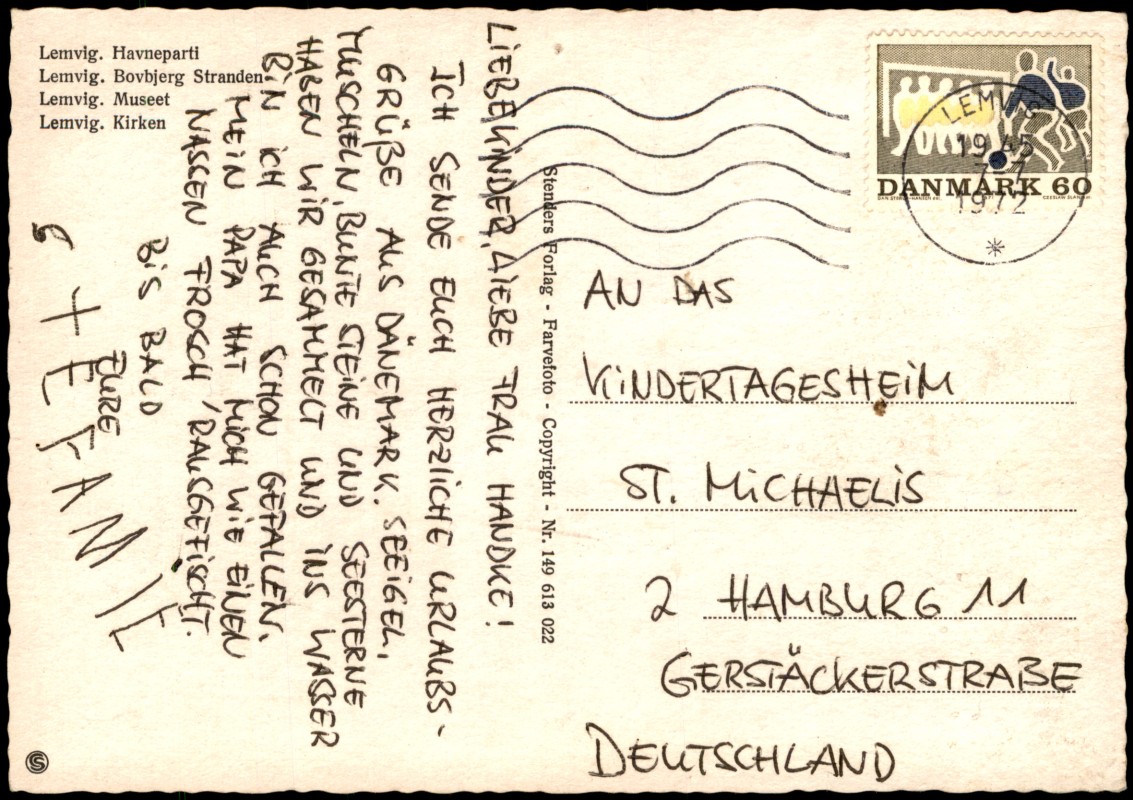 Lemvig. Havneparti
Lemvig. Bovbjerg Stranden
Lemvig. Museet
Lemvig. Kirken
LIEBE KINDER, LIEBE FRAU HANDKE!
ICH SENDE EUCH HERZLICHE URLAUBS-
GRÜßE AUS DÄNEMARK. SEEIGEL,
MUSCHELN, BUNTE STEINE UND SEESTERNE
HABEN WIR GESAMMELT UND INS WASSER
BIN ICH AUCH SCHON GEFALLEN.
MEIN PAPA HAT MICH WIE EINEN
NASSEN FROSCH 'RAUSGEFISCHT.
BIS BALD
EURE
STEFANIE
Stenders Forlag - Farvefoto - Copyright - Nr. 149 613 022
LEMVIG
1972
DANMARK 60
AN DAS
KINDERTAGESHEIM
ST. MICHAELIS
2 HAMBURG 11
GERSTÄCKERSTRAßE
DEUTSCHLAND
S